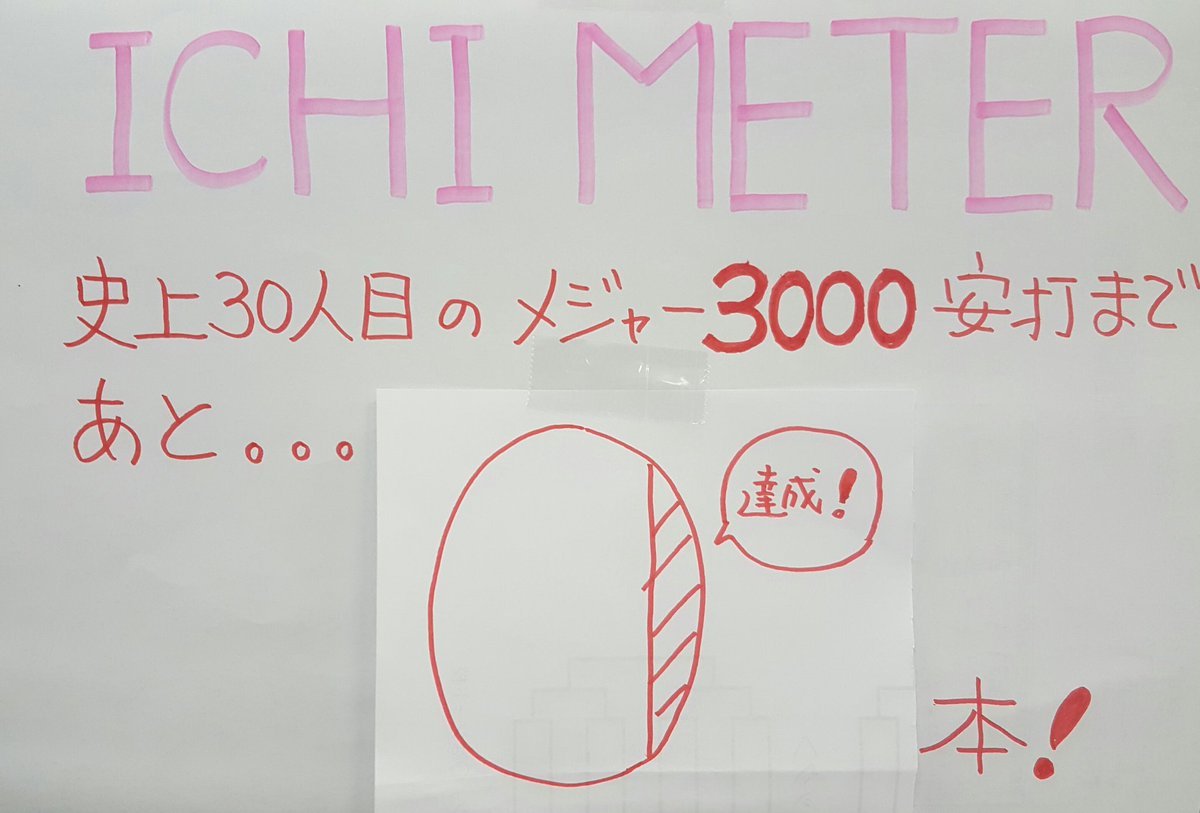 ICHI METER
史上30人目のメジャー3000安打まで
あと...
0
達成!
本!